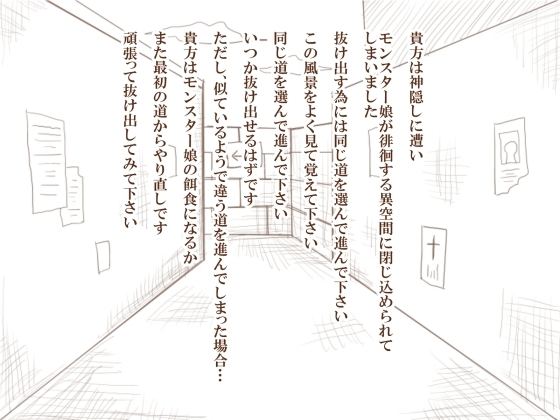 貴方は神隠しに遭い
モンスター娘が徘徊する異空間に閉じ込められて
しまいました
抜け出す為には同じ道を選んで進んで下さい
この風景をよく見て覚えて下さい
同じ道を選んで進んで下さい
いつか抜け出せるはずです
ただし、似ているようで違う道を進んでしまった場合…
貴方はモンスター娘の餌食になるか
また最初の道からやり直しです
頑張って抜け出してみて下さい